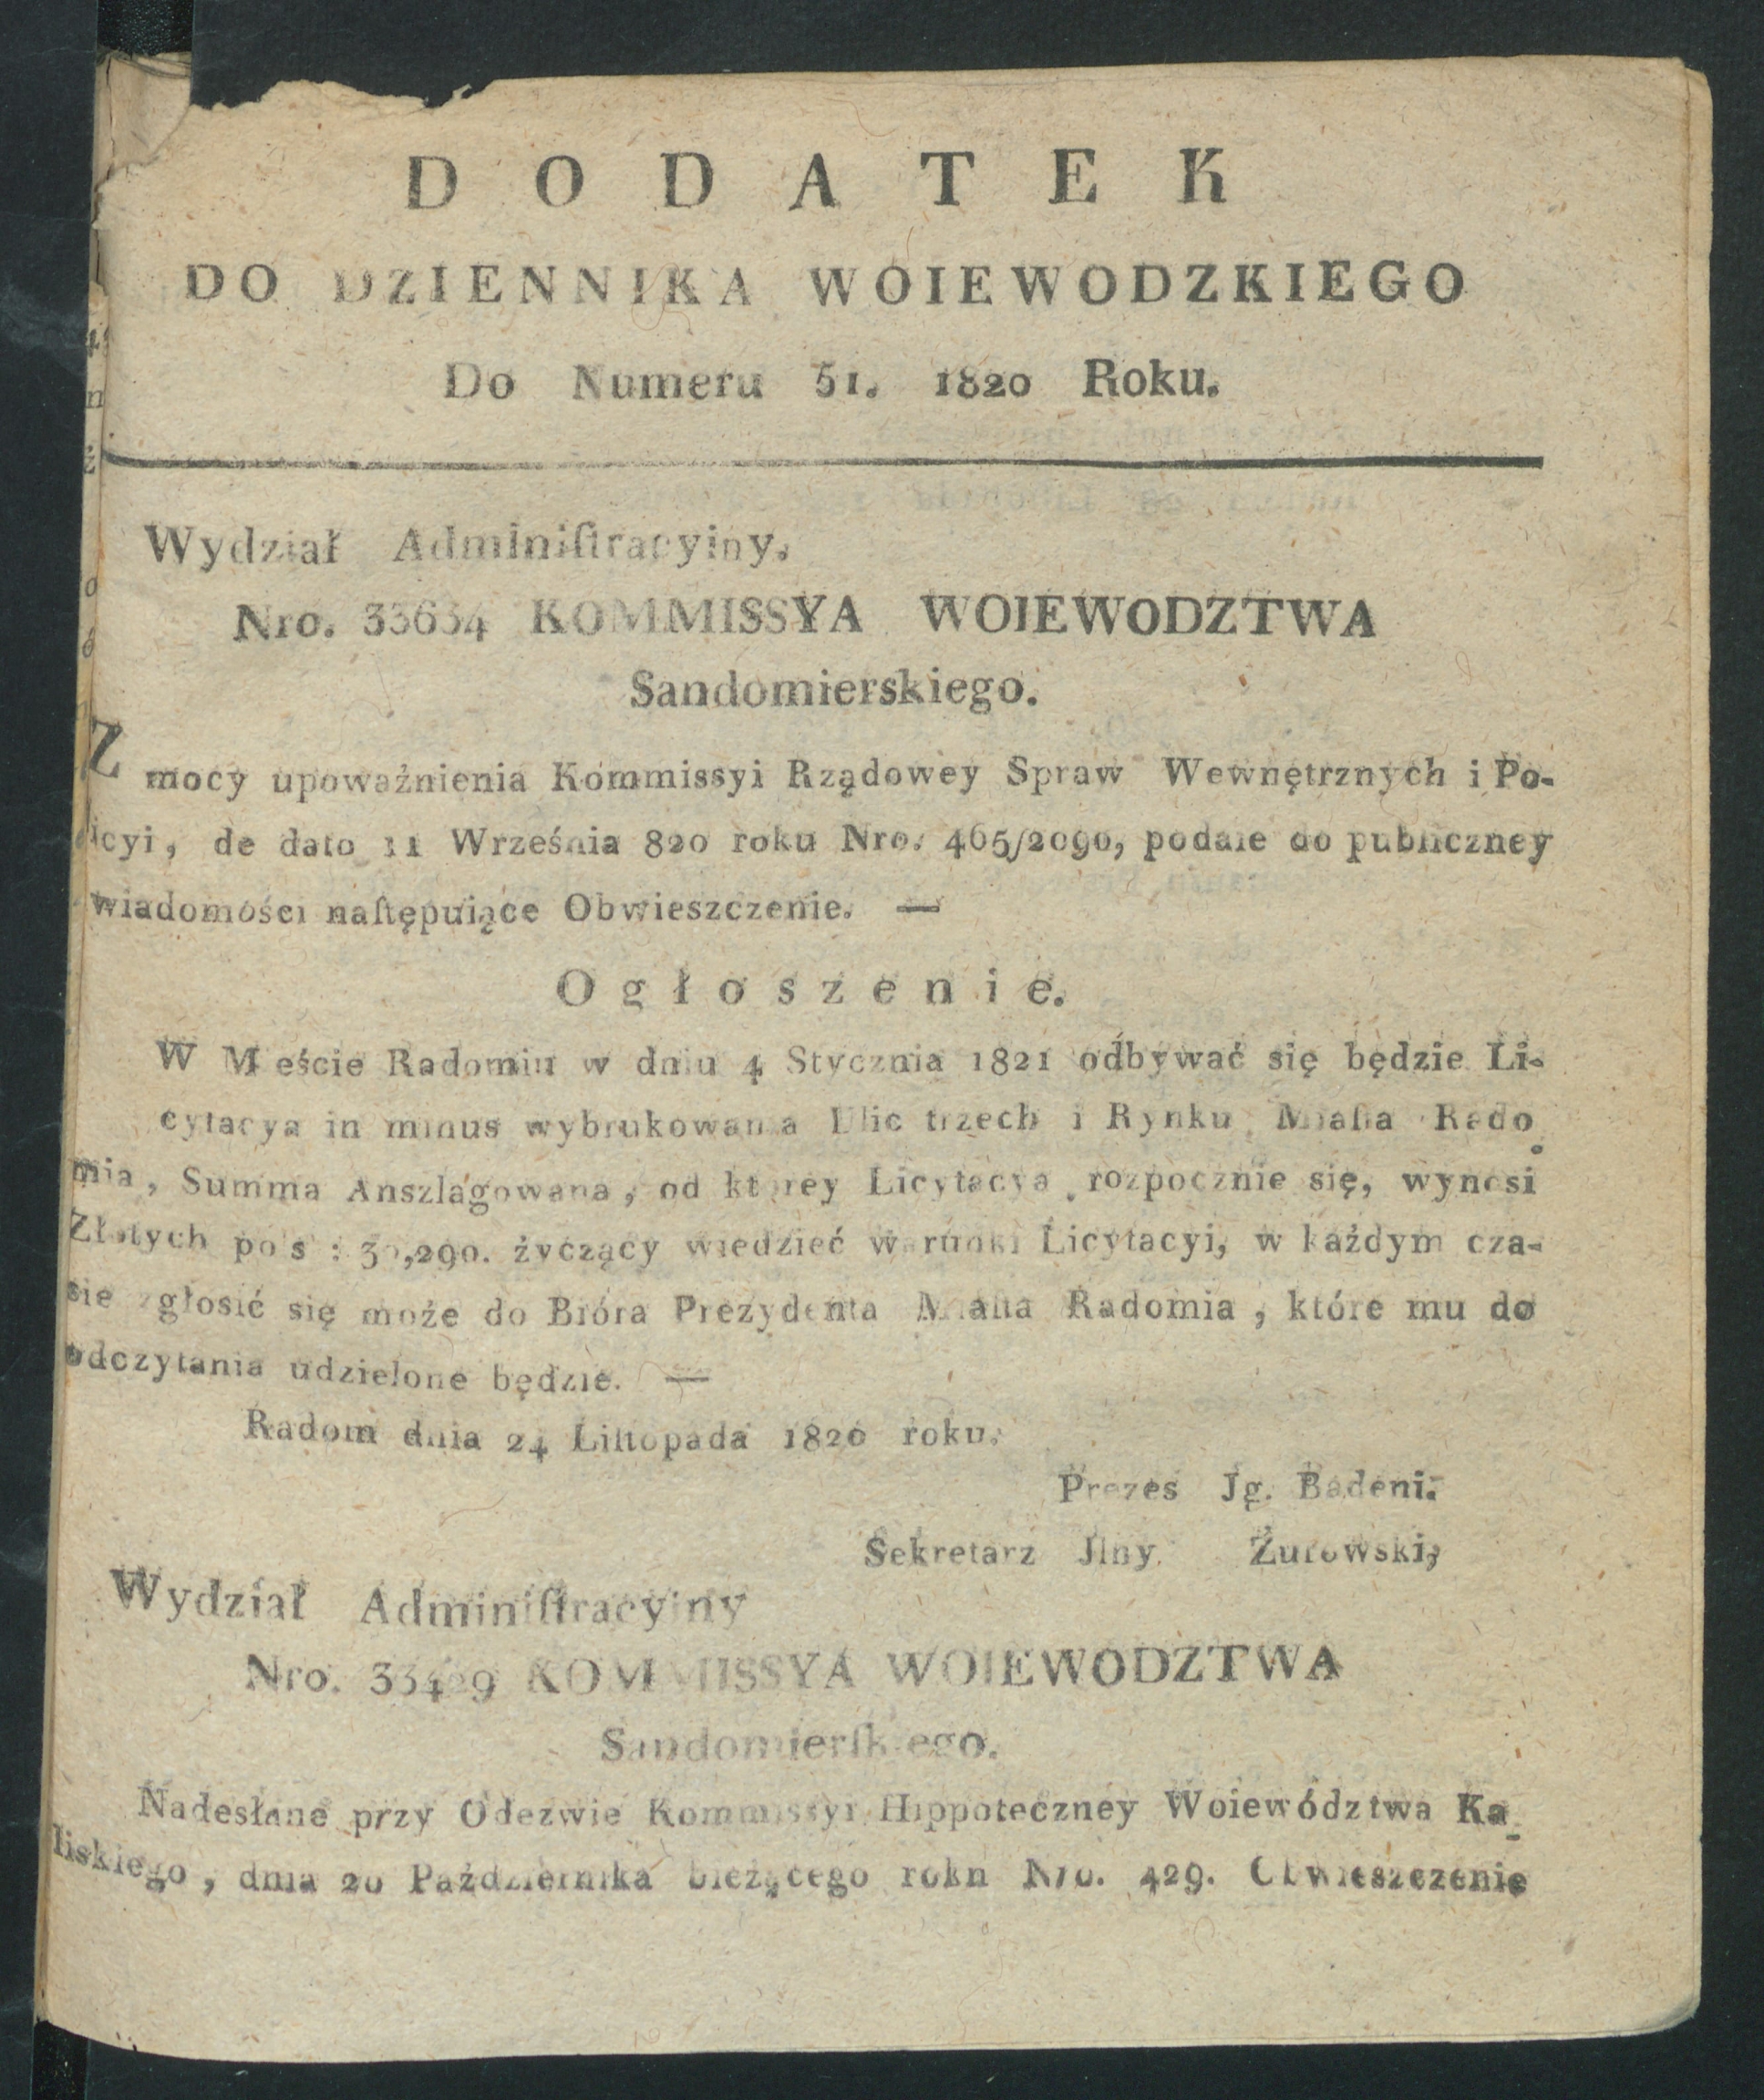 DODATEK
DO DZIENNIKA WOIEWODZKIEGO
Do Numeru 51. 1820 Roku.
Wydział Adminiſtracyiny.
Nro. 33634 KOMMISSYA WOIEWODZTWA
Sandomierskiego.
Z mocy upoważnienia Kommissyi Rządowey Spraw Wewnętrznych i Po-
licyi, de dato 11 Września 820 roku Nro. 465/2090, podaie do publiczney
wiadomości naſtępuiące Obwieszczenie. —
Ogłoszenie.
W Mieście Radomiu w dniu 4 Stycznia 1821 odbywać się będzie Li-
cytacya in minus wybrukowania Ulic trzech i Rynku Miaſta Rado
mia, Summa Anszlagowana, od ktorey Licytacya rozpocznie się, wynosi
Złotych pols: 30,290. życzący wiedzieć warunki Licytacyi, w każdym cza-
sie zgłosić się może do Bióra Prezydenta Miaſta Radomia, które mu do
odczytania udzielone będzie. —
Radom dnia 24 Liſtopada 1820 roku.
Prezes Jg. Badeni.
Sekretarz Jlny. Żurowski,
Wydział Adminiſtracyiny
Nro. 33429 KOMMISSYA WOIEWODZTWA
Sandomierſkiego.
Nadesłane przy Odezwie Kommissyi Hippoteczney Woiewództwa Ka
liskiego, dnia 20 Października bieżącego rokn Nro. 429. Obwieszczenie